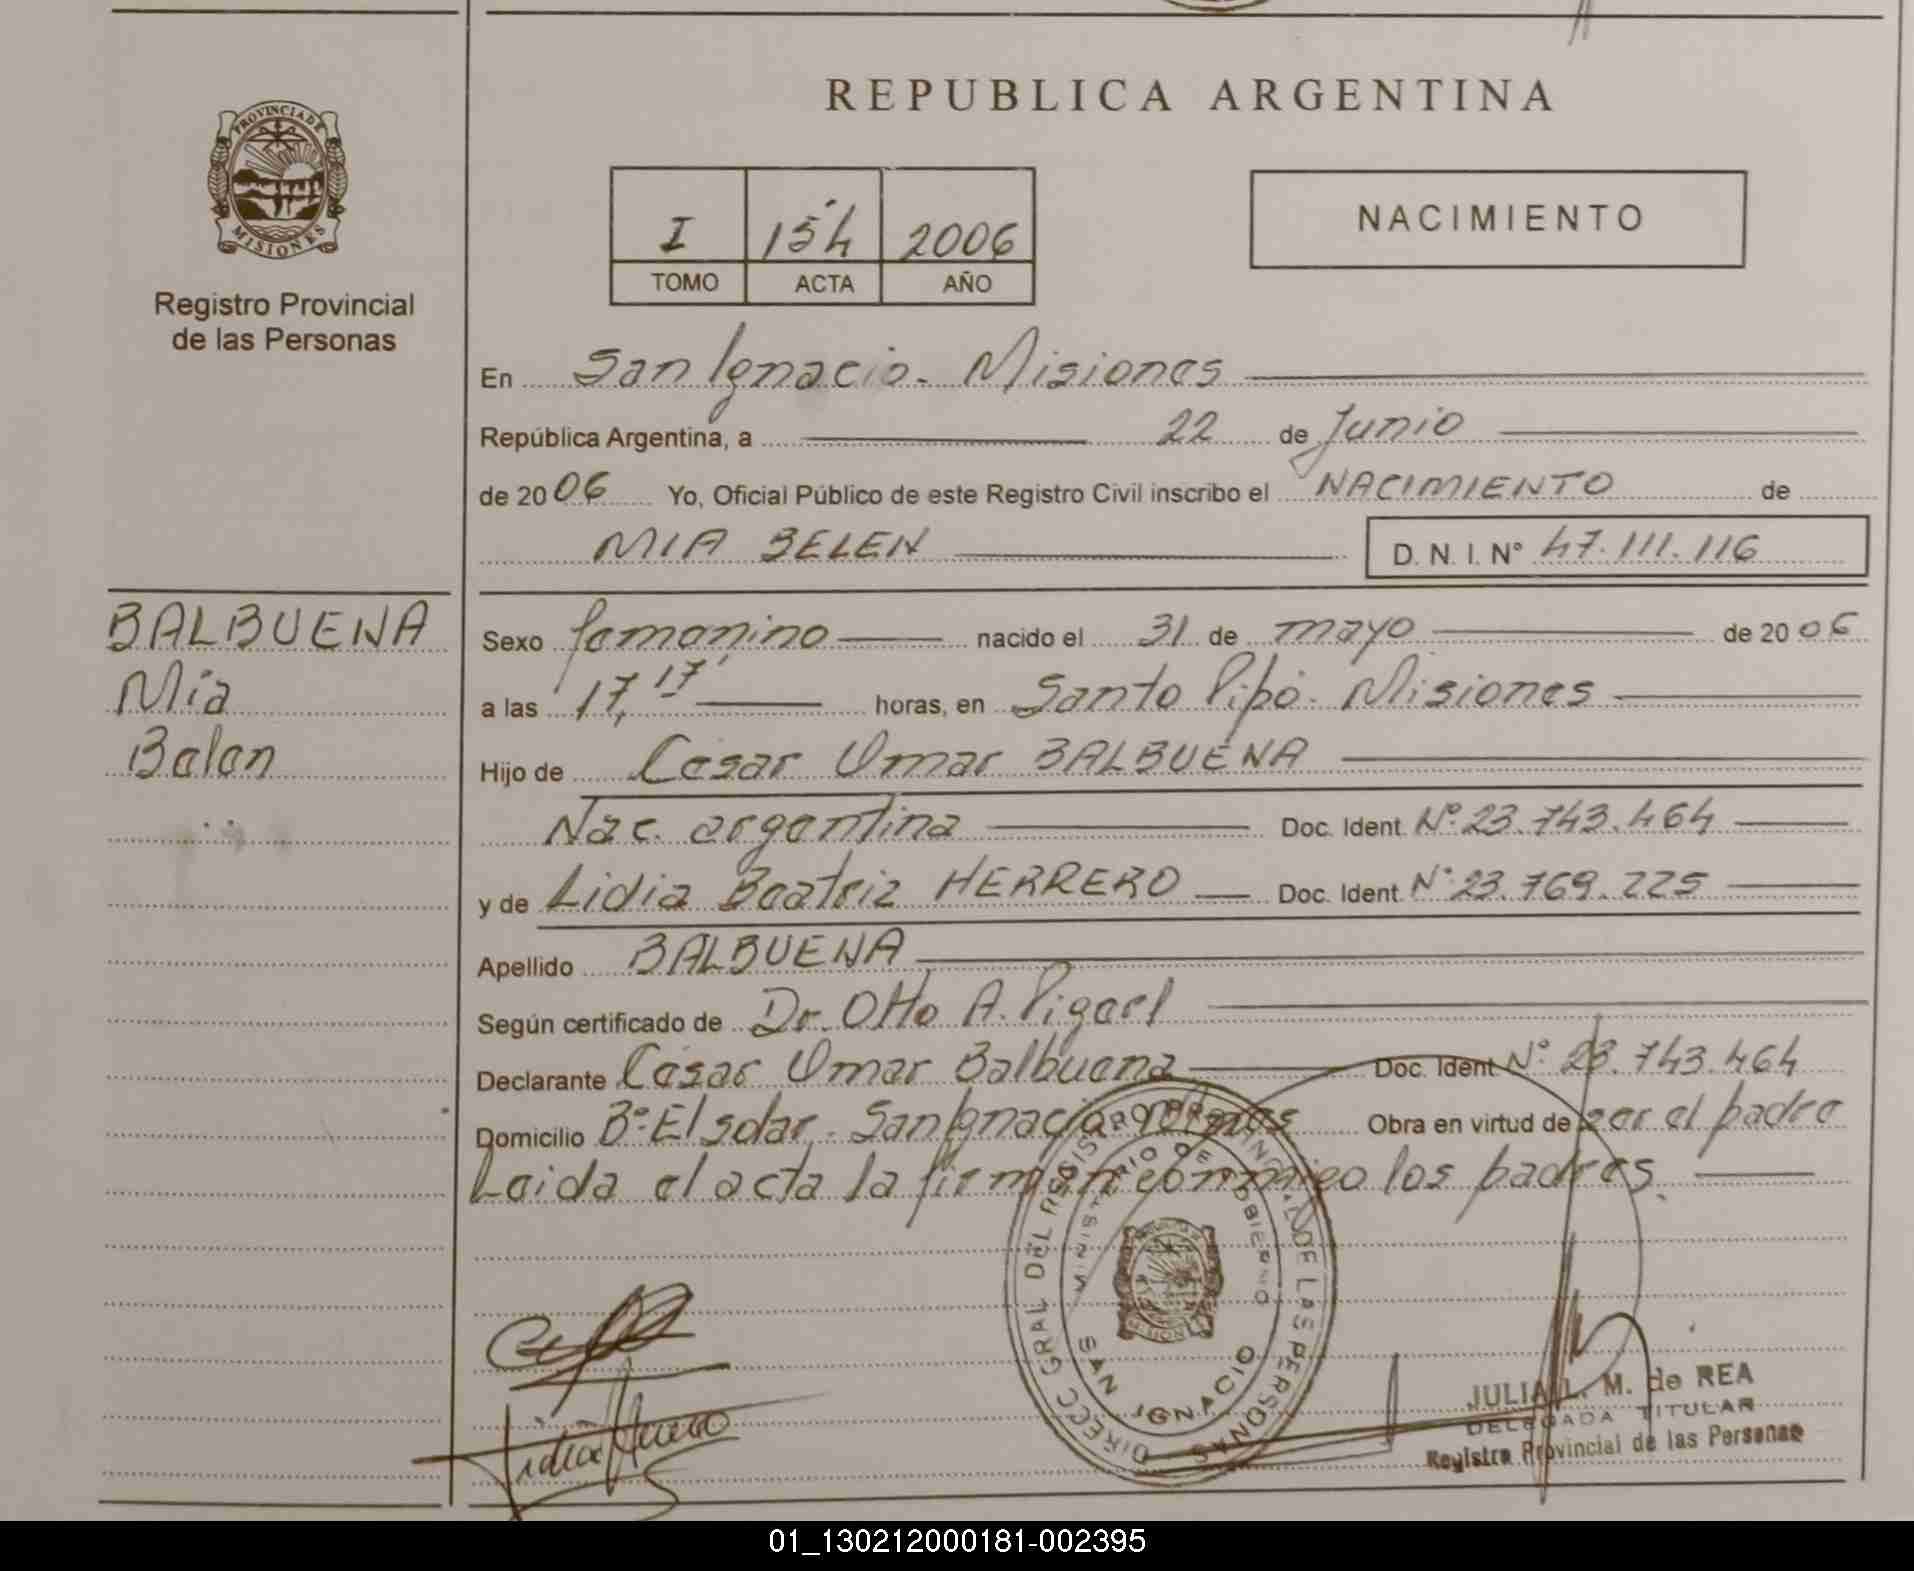 REPUBLICA ARGENTINA
PROVINCIA DE
MISIONES
Registro Provincial
de las Personas
I 154 2006
TOMO ACTA AÑO
NACIMIENTO
En San Ignacio - Misiones
República Argentina, a 22 de Junio
de 20 06 Yo, Oficial Público de este Registro Civil inscribo el NACIMIENTO de
MIA BELEN D. N. I. N° 47.111.116
BALBUENA
Mía
Belen
Sexo femenino nacido el 31 de mayo de 20 06
a las 17,17' horas, en Santo Pipó - Misiones
Hijo de César Omar BALBUENA
Nac. argentina Doc. Ident. N° 23.743.464
y de Lidia Beatriz HERRERO Doc. Ident. N° 23.769.225
Apellido BALBUENA
Según certificado de Dr. Otto A.
Declarante César Omar Balbuena Doc. Ident N° 23.743.464
Domicilio B° El solar - San Ignacio Mnes Obra en virtud de ser el padre
Leida el acta la firman conmigo los padres.
DIRECC GRAL DEL REGISTRO PROVINCIAL DE LAS PERSONAS
MINISTERIO DE GOBIERNO
SAN IGNACIO
JULIA L. M. de REA
DELEGADA TITULAR
Registro Provincial de las Personas
01_130212000181-002395